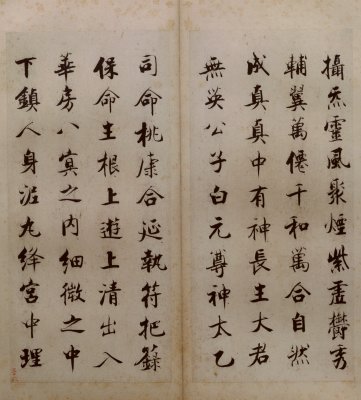 攝炁靈風聚煙紫虛鬱秀
輔翼萬僊千和萬合自然
成真真中有神長生大君
無英公子白元尊神太乙
司命桃康合延執符把籙
保命生根上遊上清出入
華房八冥之内細微之中
下鎮人身泥丸絳宮中理